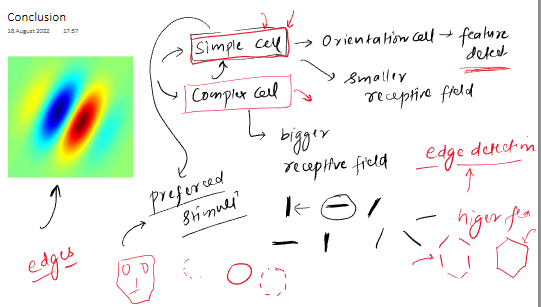 Conclusion
18 August 2022 17:57
Simple cell → Orientation cell → feature
detect
smaller
receptive field
Complex cell
bigger
receptive field
edge detection
preferred
stimuli
higer fea
edges